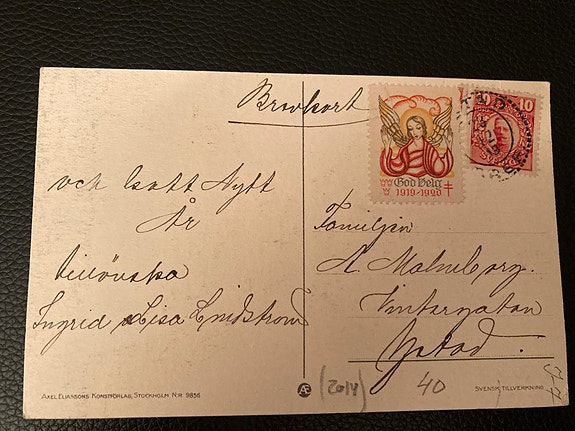 Brevkort
God Helg
1919-1920
10
och Gott Nytt
År
tillönska
Ingrid o Lisa Lindström
Familjen
A. Malmborg.
Ystad.
(2018)
40
AXEL ELIASSONS KONSTFÖRLAG, STOCKHOLM. N:R 9856
Æ
SVENSK TILLVERKNING